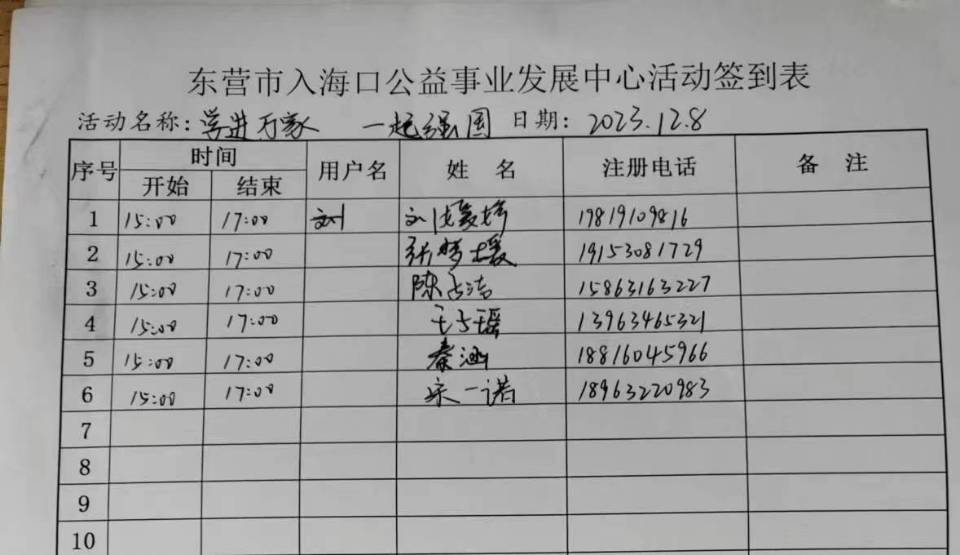 东营市入海口公益事业发展中心活动签到表
活动名称：学进万家 一起强国 日期：2023.12.8
序号 时间 用户名 姓名 注册电话 备注
开始 结束
1 15:00 17:00 刘 刘媛婷 19819109816
2 15:00 17:00 张梦媛 19153081729
3 15:00 17:00 陈洁 15863163227
4 15:00 17:00 王瑶 13963465321
5 15:00 17:00 秦涵 18816045966
6 15:00 17:00 宋一诺 18963220983
7
8
9
10